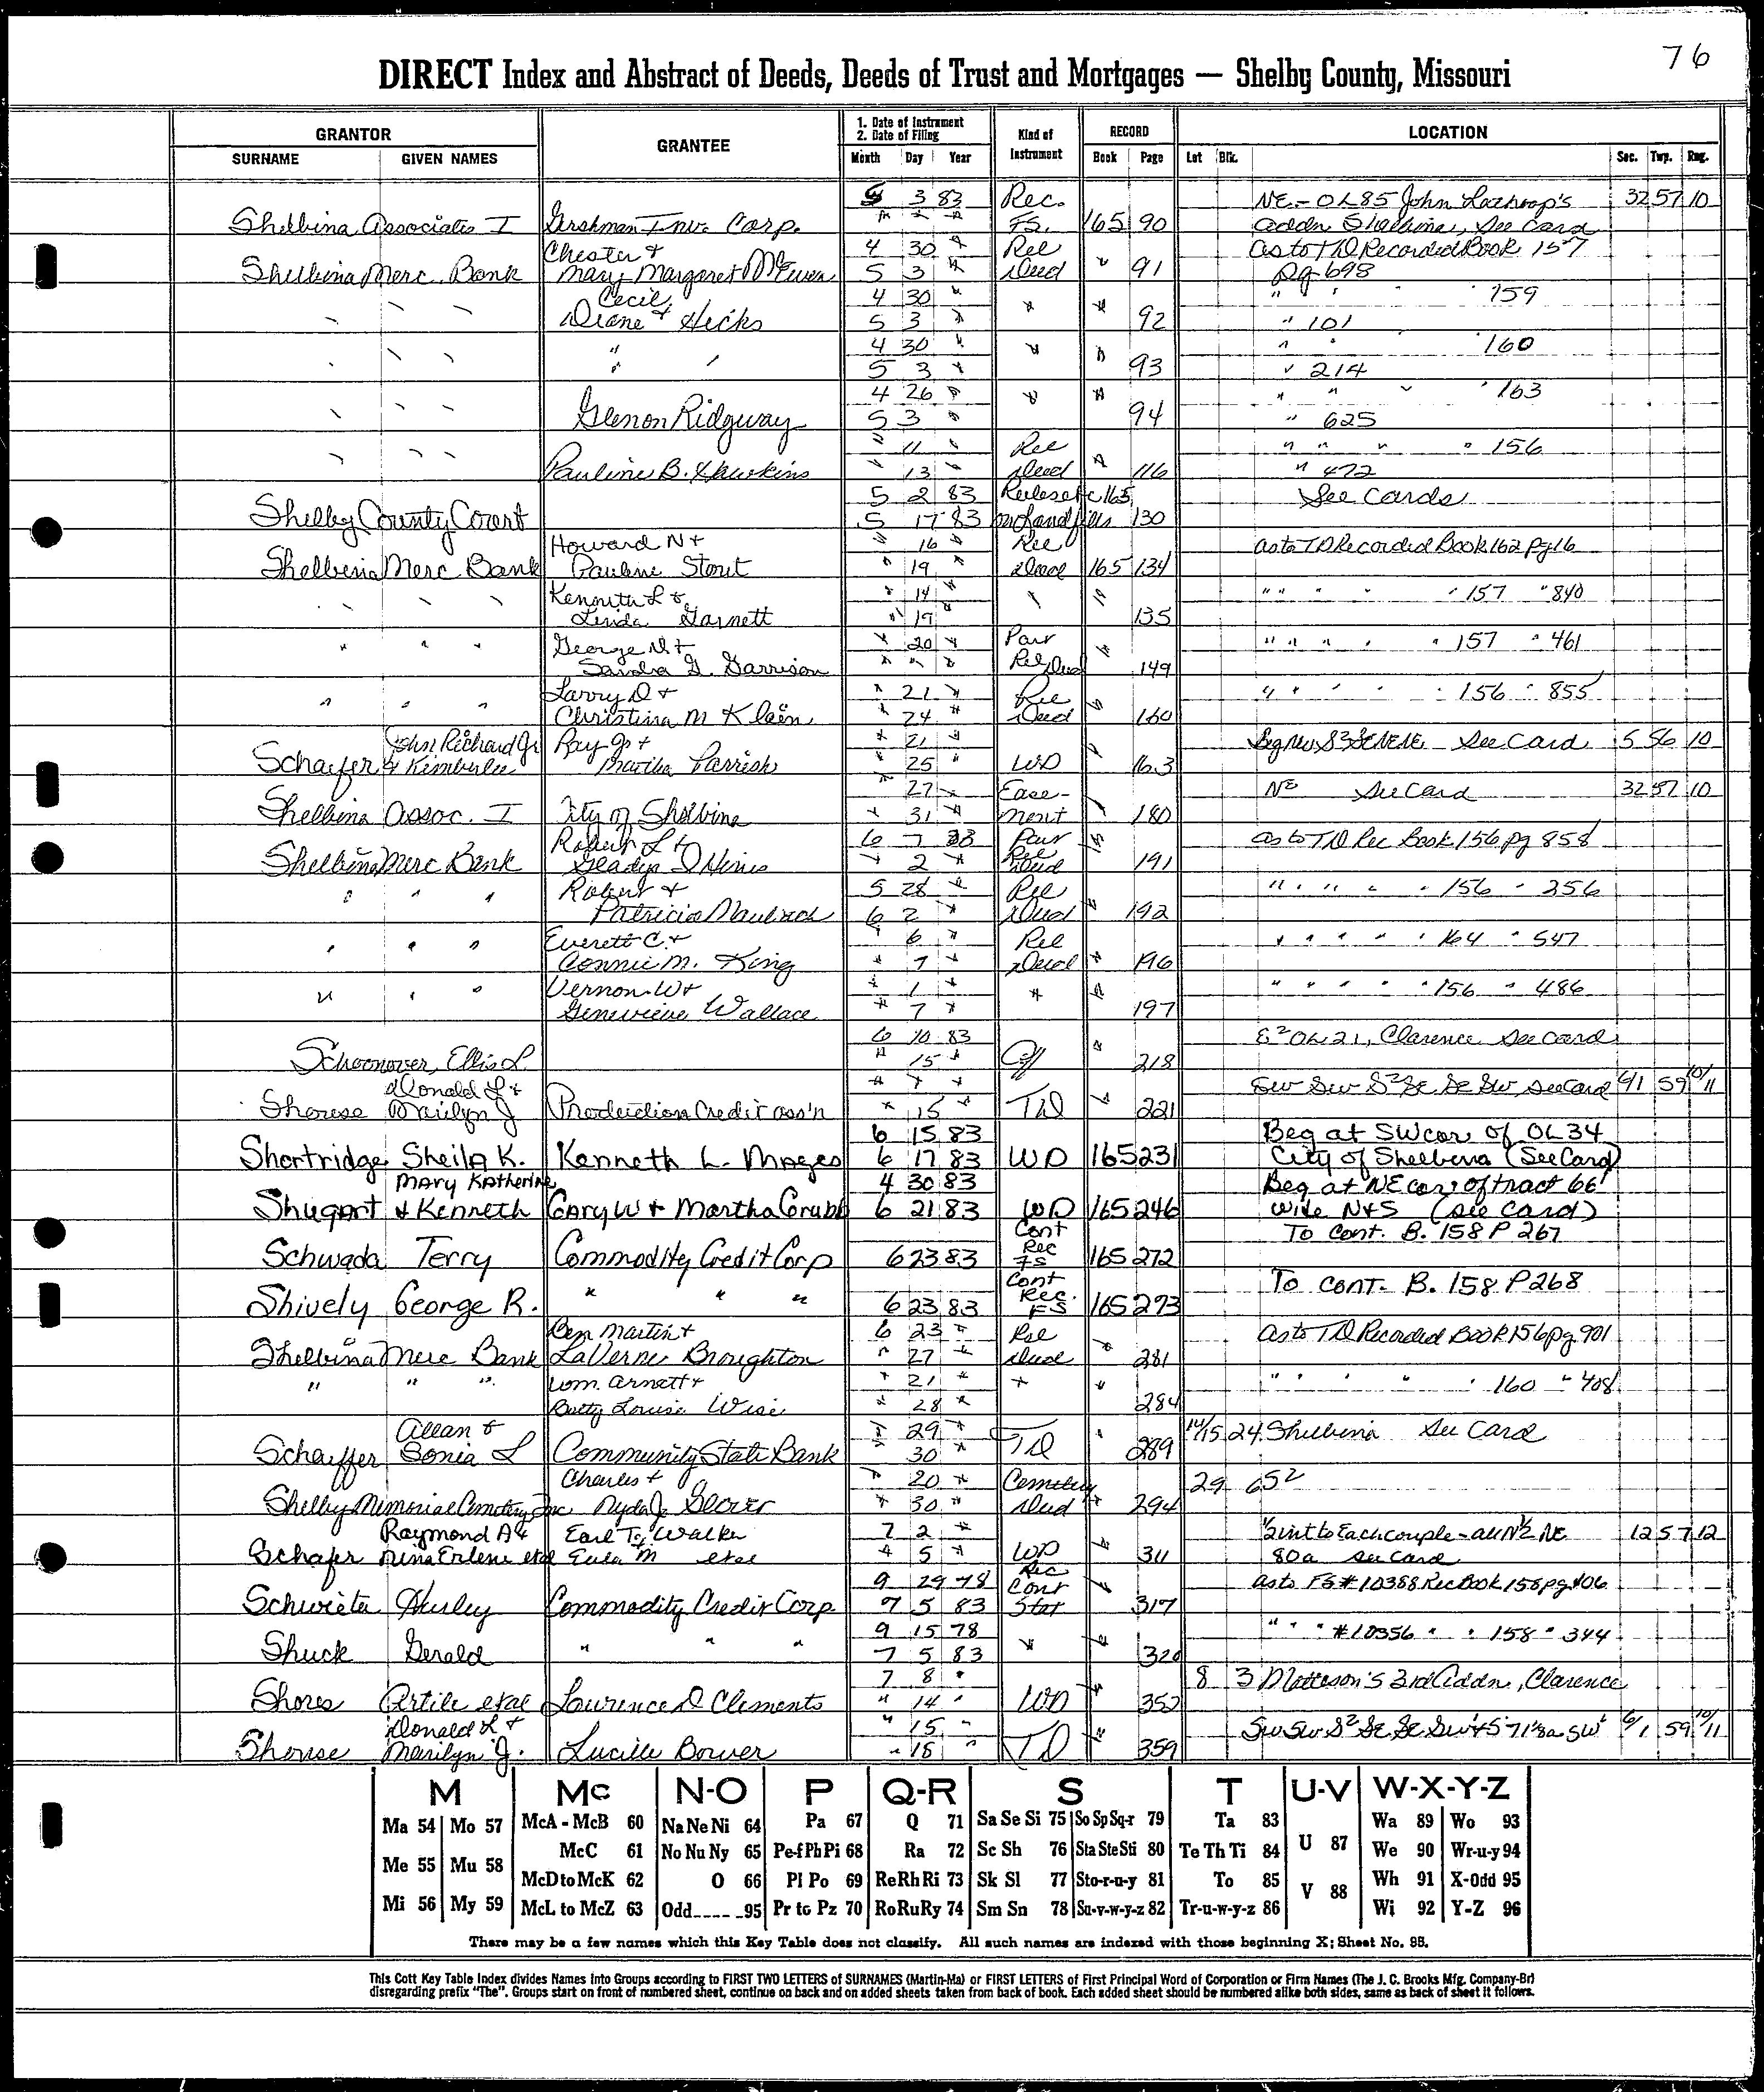 76
DIRECT Index and Abstract of Deeds, Deeds of Trust and Mortgages — Shelby County, Missouri
GRANTOR
SURNAME GIVEN NAMES
GRANTEE
1. Date of Instrument
2. Date of Filing
Month Day Year
Kind of Instrument
RECORD
Book Page
LOCATION
Lot Blk. Sec. Twp. Rng.
3 83 Rec. NE - OL 85 John Lathrop's 32 57 10
Shelbina Associates I Gershman Inv. Corp. " " " FS. 165 90 addn Shelbina, See Card
Chester & 4 30 " Rel as to TD Recorded Book 157
Shelbina Merc. Bank Mary Margaret McEwen 5 3 " Deed " 91 pg 698
Cecil 4 30 " " " " 159
" " " Diane & Hicks 5 3 " " " 92 " 101
4 30 " " " " 160
" " " " " 5 3 " " " 93 " 214
4 26 " " " " " 163
" " " Glenon Ridgway 5 3 " " " 94 " 625
" 11 " Rel " " " " 156
" " " Pauline B. Hawkins " 13 " Deed " 116 " 472
5 2 83 165 See Cards
Shelby County Court 5 17 83 130
Howard N & " 16 " Rel as to TD Recorded Book 162 pg 16
Shelbina Merc Bank Pauline Stout " 19 " Deed 165 134
Kenneth L & " 14 " " " " " " " 157 " 840
" " " Linda Garnett " 19 " 135
George N & " 20 " Part " " " " " 157 " 461
" " " Sandra G. Garrison " " " Rel Deed " 149
Larry D & " 21 " Rel " " " " " 156 " 855
" " " Christina M Klein " 24 " Deed " 160
John Richard Jr Ray Jr & " 21 " See Card 5 56 10
Schaefer & Kimberlee Martha Parrish " 25 " WD " 163
" 27 " Ease- NE See Card 32 57 10
Shelbina Assoc. I City of Shelbina " 31 " ment " 180
Robert L & 6 83 Part " as to TD Rec Book 156 pg 858
Shelbina Merc Bank Gladys D Hines " 2 " Rel Deed 191
Robert & 5 28 " Rel " " " " " 156 " 256
" " " Patricia 6 2 " Deed " 192
Everett C. & " 6 " Rel " " " " " 164 " 547
" " " Connie M. King " 7 " Deed " 196
Vernon W & " 1 " " " " " " " " 156 " 486
" " " Genevieve Wallace " 7 " 197
6 10 83 " E2 OL 21, Clarence See Card
Schoonover, Ellis L " 15 " 218
Donald L & " 7 " SW SW S2 SE SE SW See Card 6/1 59 10/11
Shouse Marilyn J Production Credit Ass'n " 15 " TD " 221
6 15 83 Beg at SW cor of OL 34
Shortridge Sheila K. Kenneth L. Mages 6 17 83 WD 165 231 City of Shelbina (See Card)
Mary Katherine 4 30 83 Beg at NE cor of tract 66'
Shugart & Kenneth Gary W & Martha Grubb 6 21 83 WD 165 246 wide N&S (See Card)
Cont To Cont. B. 158 P 267
Schwada Terry Commodity Credit Corp 6 23 83 Rec FS 165 272
Cont To Cont. B. 158 P 268
Shively George R. " " " 6 23 83 Rec. FS 165 273
Ben Martin & 6 23 " Rel as to TD Recorded Book 156 pg 901
Shelbina Merc Bank LaVerne Broughton " 27 " Deed " 281
Wm. Arnett & " 21 " " " " " " " 160 " 408
" " " Betty Louise Wise " 28 " 284
Allan & " 29 " 14/15 24 Shelbina See Card
Schaeffer Sonia L Community State Bank " 30 TD " 289
Charles & " 20 " Cemetery 29 652
Shelby Memorial Cemetery Inc Nyda J. Glover " 30 " Deed " 294
Raymond A & Earl T. Walker 7 2 " 1/2 int to Each couple - all N1/2 NE 12 57 12
Schafer Nina Erlene etal Eula M etal " 5 " WD " 311 80a See Card
9 29 78 Rec Cont as to FS # 10388 Rec Book 158 pg 406
Schwieta Hurley Commodity Credit Corp 7 5 83 Stat " 317
9 15 78 " " " # 10356 " " 158 " 344
Shuck Gerald " " " 7 5 83 " " 320
7 8 " 8 3 Matteson's 3rd Addn, Clarence
Shores Artile etal Lawrence D Clements " 14 " WD " 352
Donald L & " 15 " SW SW S2 SE SE SW 6/1 59 10/11
Shouse Marilyn J. Lucille Bower " 18 " TD " 359
M Mc N-O P Q-R S T U-V W-X-Y-Z
Ma 54 Mo 57 McA - McB 60 Na Ne Ni 64 Pa 67 Q 71 Sa Se Si 75 So Sp Sq-r 79 Ta 83 Wa 89 Wo 93
Me 55 Mu 58 McC 61 No Nu Ny 65 Pe-f Ph Pi 68 Ra 72 Sc Sh 76 Sta Ste Sti 80 Te Th Ti 84 U 87 We 90 Wr-u-y 94
McD to McK 62 O 66 Pl Po 69 Re Rh Ri 73 Sk Sl 77 Sto-r-u-y 81 To 85 V 88 Wh 91 X-Odd 95
Mi 56 My 59 McL to McZ 63 Odd_____95 Pr to Pz 70 Ro Ru Ry 74 Sm Sn 78 Su-v-w-y-z 82 Tr-u-w-y-z 86 Wi 92 Y-Z 96
There may be a few names which this Key Table does not classify. All such names are indexed with those beginning X; Sheet No. 95.
This Cott Key Table Index divides Names into Groups according to FIRST TWO LETTERS of SURNAMES (Martin-Ma) or FIRST LETTERS of First Principal Word of Corporation or Firm Names (The J. C. Brooks Mfg. Company-Br)
disregarding prefix "The". Groups start on front of numbered sheet, continue on back and on added sheets taken from back of book. Each added sheet should be numbered alike both sides, same as back of sheet it follows.